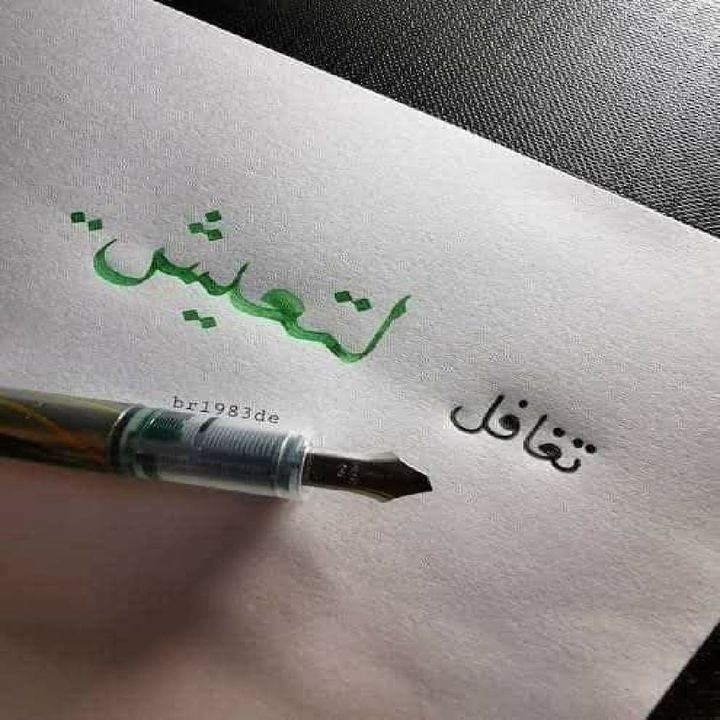 تغافل
لتعيش..
br1983de